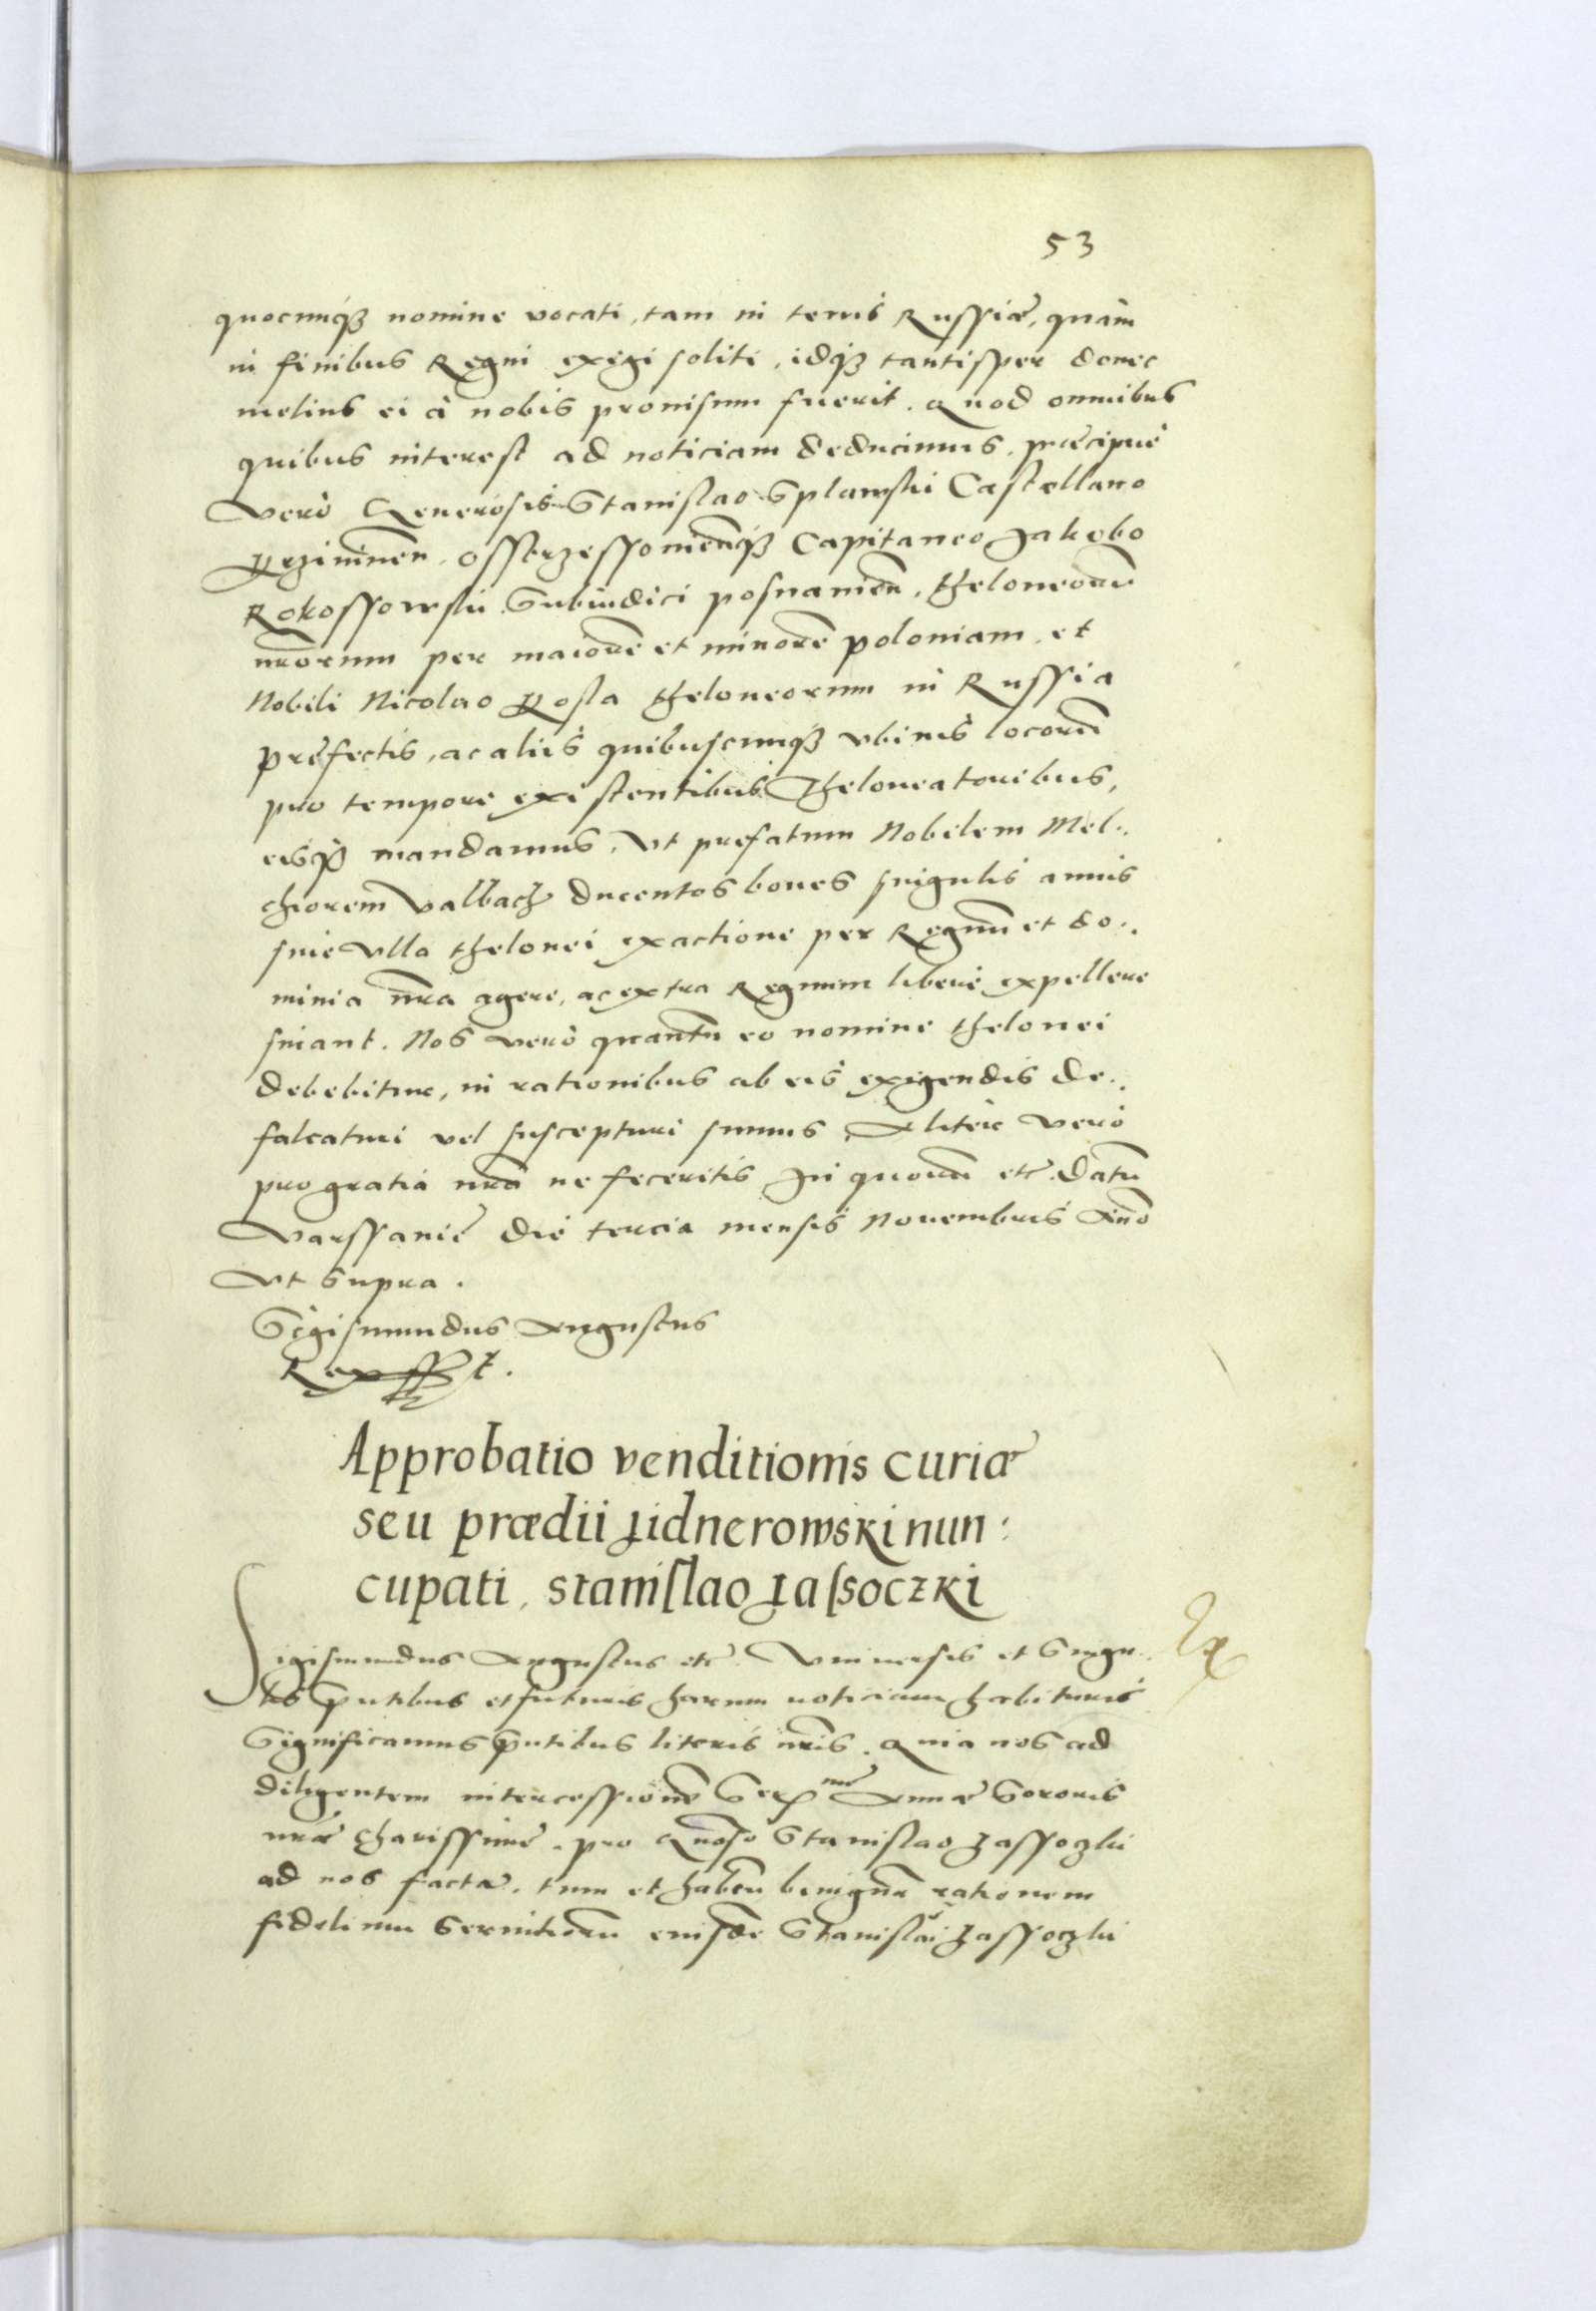 53
quocunq₃ nomine vocati, tam in terris Russiæ, quàm
in finibus Regni exigi soliti, idq₃ tantisper donec
melius ei à nobis prouisum fuerit. Quod omnibus
quibus interest ad noticiam deducimus, præcipuè
verò Generosis Stanislao Splawski Castellano
Osstrzessouienq₃ Capitaneo Jakobo
Rokossowski Subiudici posnanien̄, theloneorū
nr̄orum per maiorē et minorē poloniam, et
Nobili Nicolao theloneorum in Russia
præfectis, ac aliis quibuscunq₃ vbiuis locorū
pro tempore existentibus Theloneatoribus,
eisq₃ mandamus, Vt prefatum Nobilem Mel:
chiorem Valbach ducentos boues singulis annis
sine vlla thelonei exactione per Regnū et do:
minia nr̄a agere, ac extra Regnum liberè expellere
sinant. Nos verò quantū eo nomine thelonei
debebitur, in rationibus ab eis exigendis de:
falcaturi vel suscepturi sumus, Aliter verò
pro gratia nr̄a ne feceritis In quorū etc̄. Datū
Varssauiæ die tercia mensis Nouembris Anō
vt supra.
Sigismundus Augustus
Rex sst.
Approbatio venditionis curiæ
seu prædii Zidnerowski nun:
cupati, Stanislao Zassoczki
Sigismundus Augustus etc̄. Vniuersis et singu:
lis pn̄tibus et futuris harum noticiam habituris
Significamus pn̄tibus literis nr̄is. Quia nos ad
diligentem intercessionē Serᵐᵉ Annæ Sororis
nr̄æ charissimæ, pro Gnōso Stanislao Zassoczki
ad nos factā, tum et haben̄ benignā rationem
fidelium seruitiorū eiusdē Stanislai Zassoczki